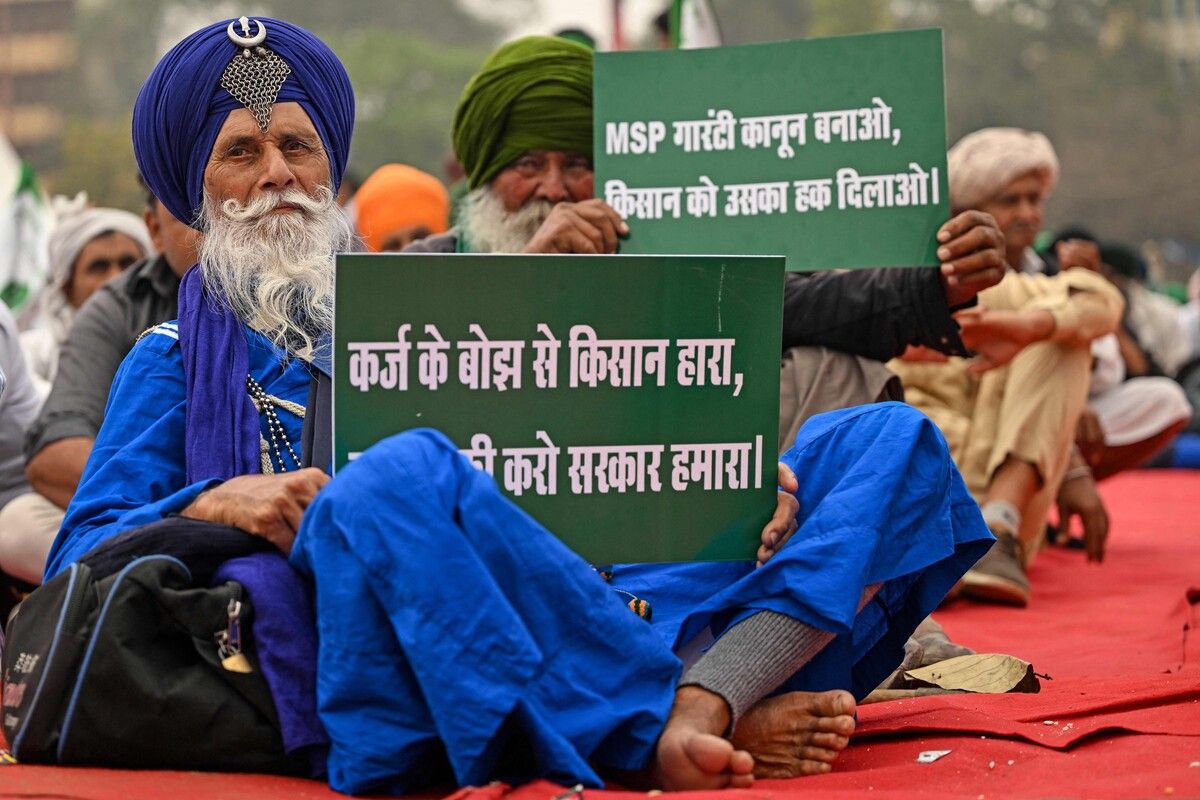 MSP गारंटी कानून बनाओ,
किसान को उसका हक दिलाओ।
कर्ज के बोझ से किसान हारा,
करो सरकार हमारा।